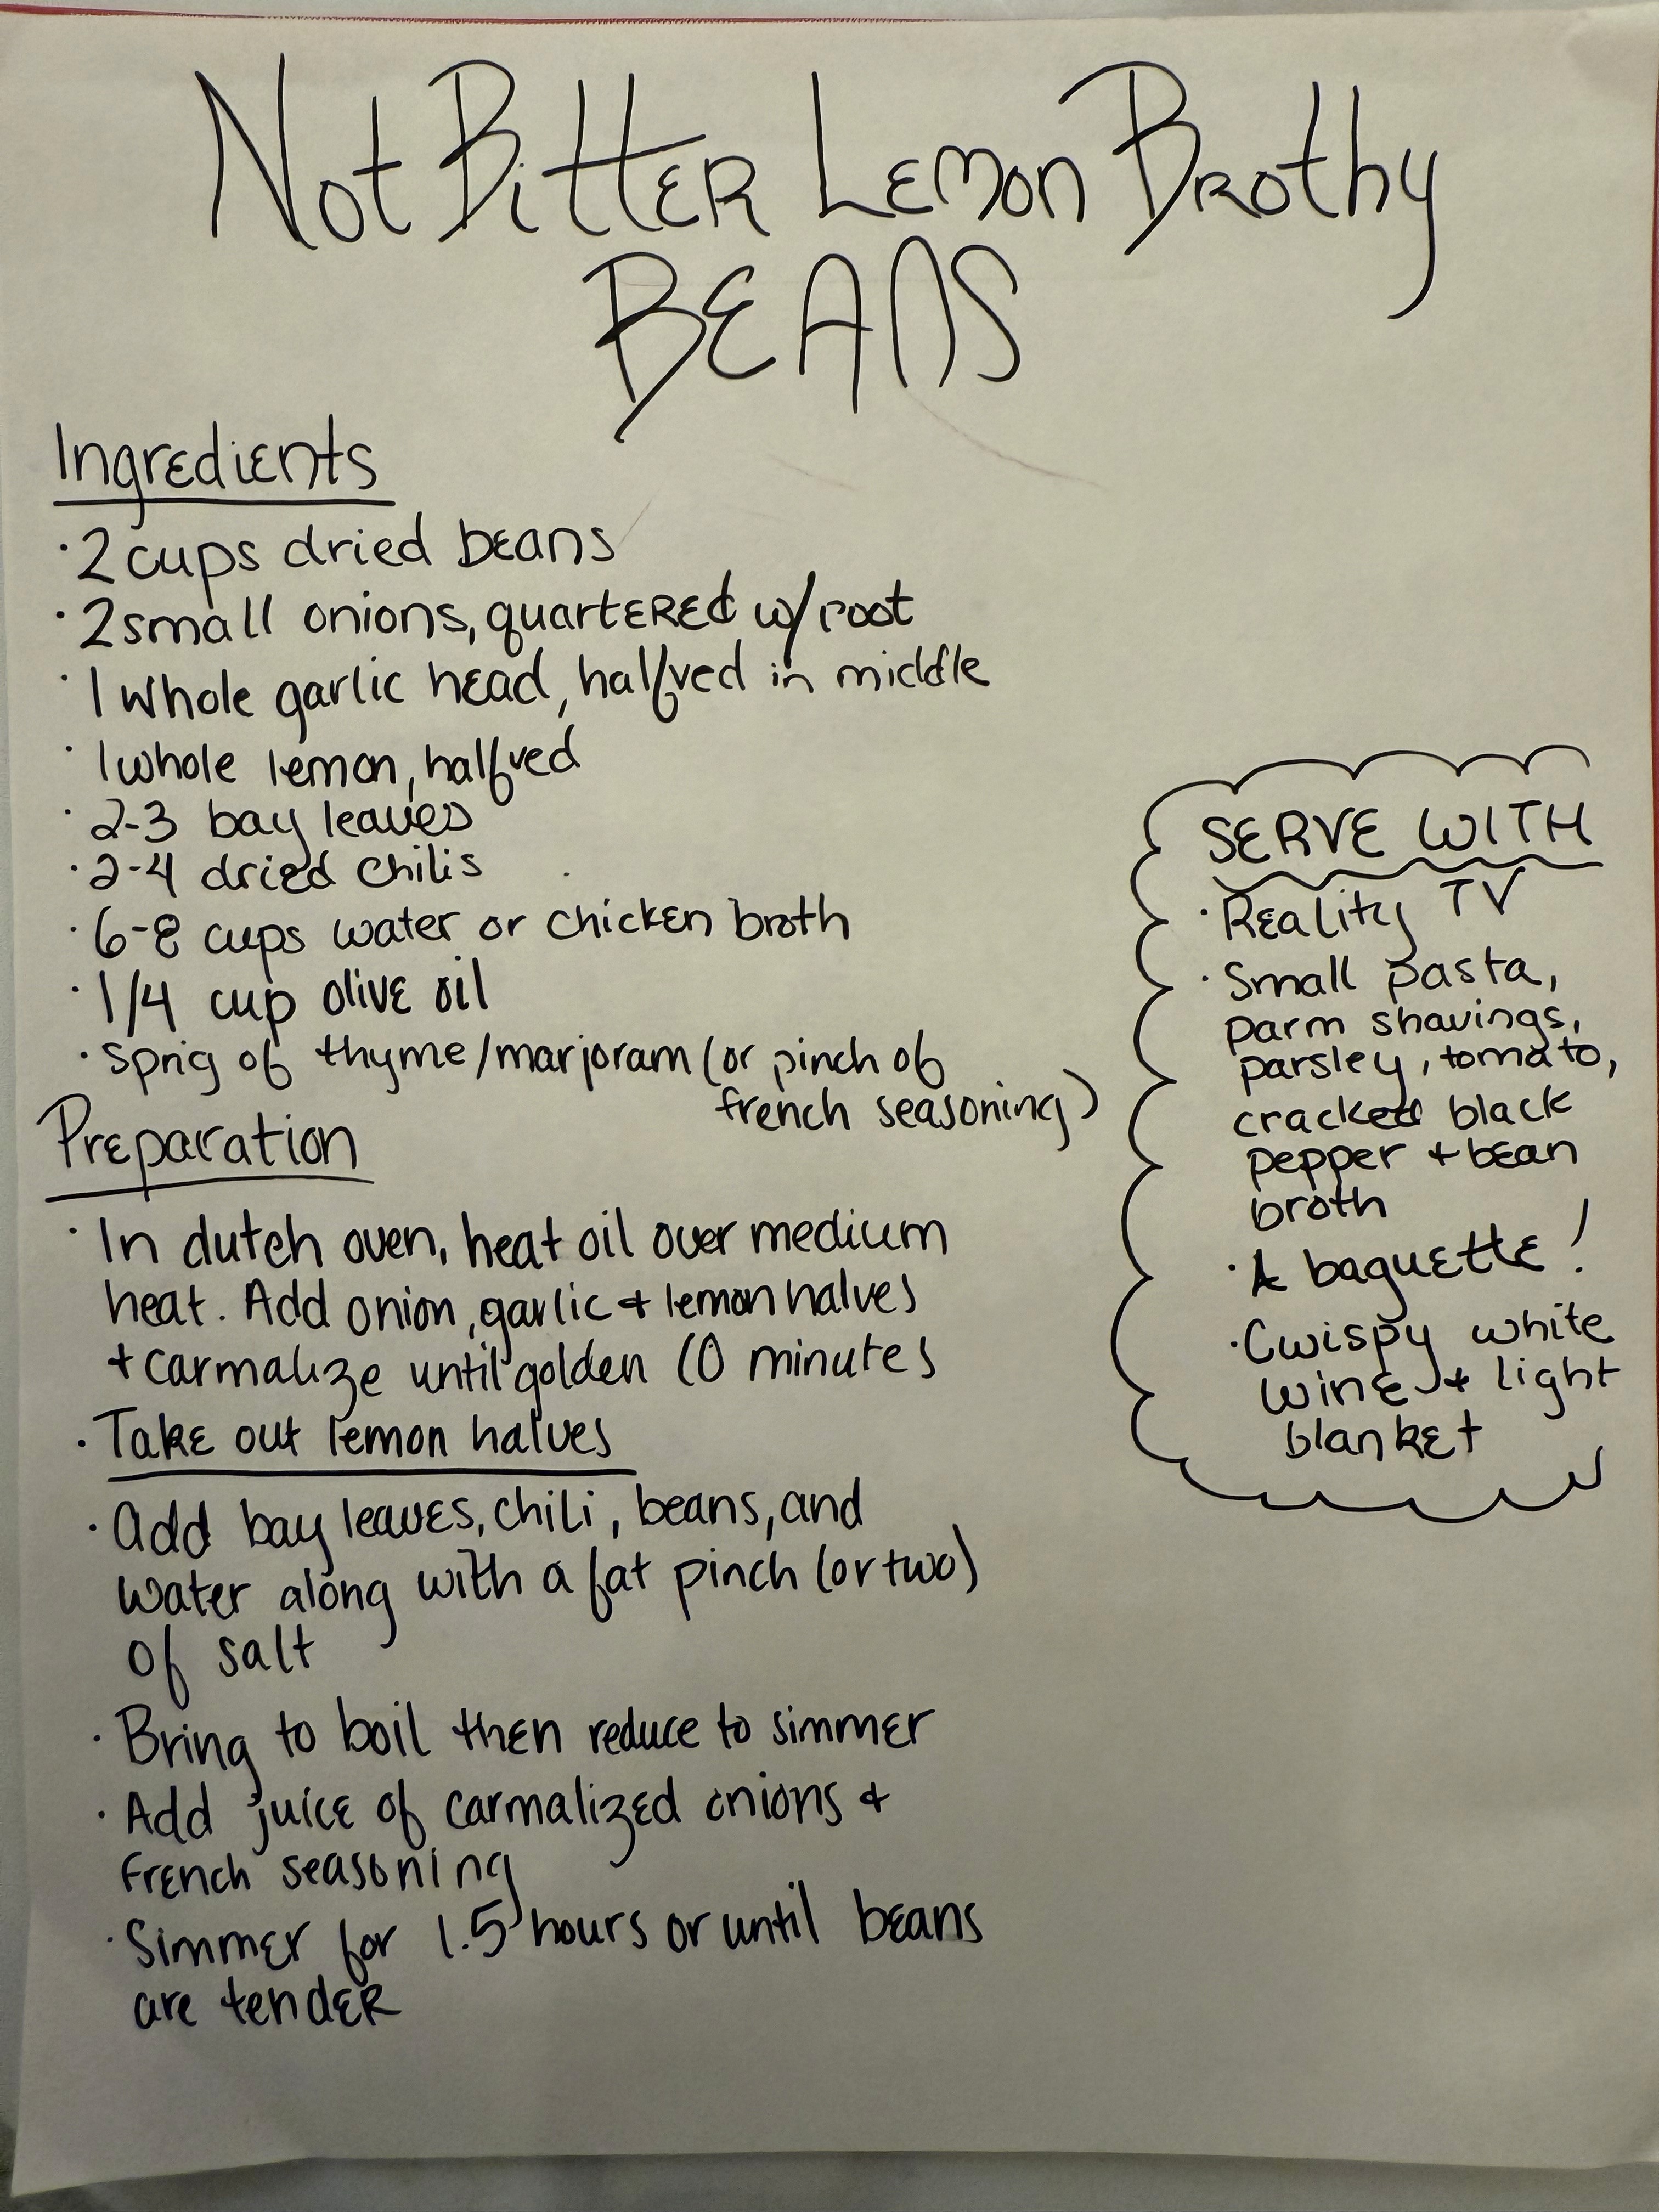 Not Bitter Lemon Brothy
BEANS
Ingredients
· 2 cups dried beans
· 2 small onions, quartered w/ root
· 1 whole garlic head, halfved in middle
· 1 whole lemon, halfved
· 2-3 bay leaves
· 2-4 dried chilis
· 6-8 cups water or chicken broth
· 1/4 cup olive oil
· sprig of thyme/marjoram (or pinch of
french seasoning)
Preparation
· In dutch oven, heat oil over medium
heat. Add onion, garlic + lemon halves
+ carmalize until golden 10 minutes
· Take out lemon halves
· Add bay leaves, chili, beans, and
water along with a fat pinch (or two)
of salt
· Bring to boil then reduce to simmer
· Add juice of carmalized onions +
french seasoning
· Simmer for 1.5 hours or until beans
are tender
SERVE WITH
· Reality TV
· Small pasta,
parm shavings,
parsley, tomato,
cracked black
pepper + bean
broth
· A baguette!
· Cwispy white
wine + light
blanket